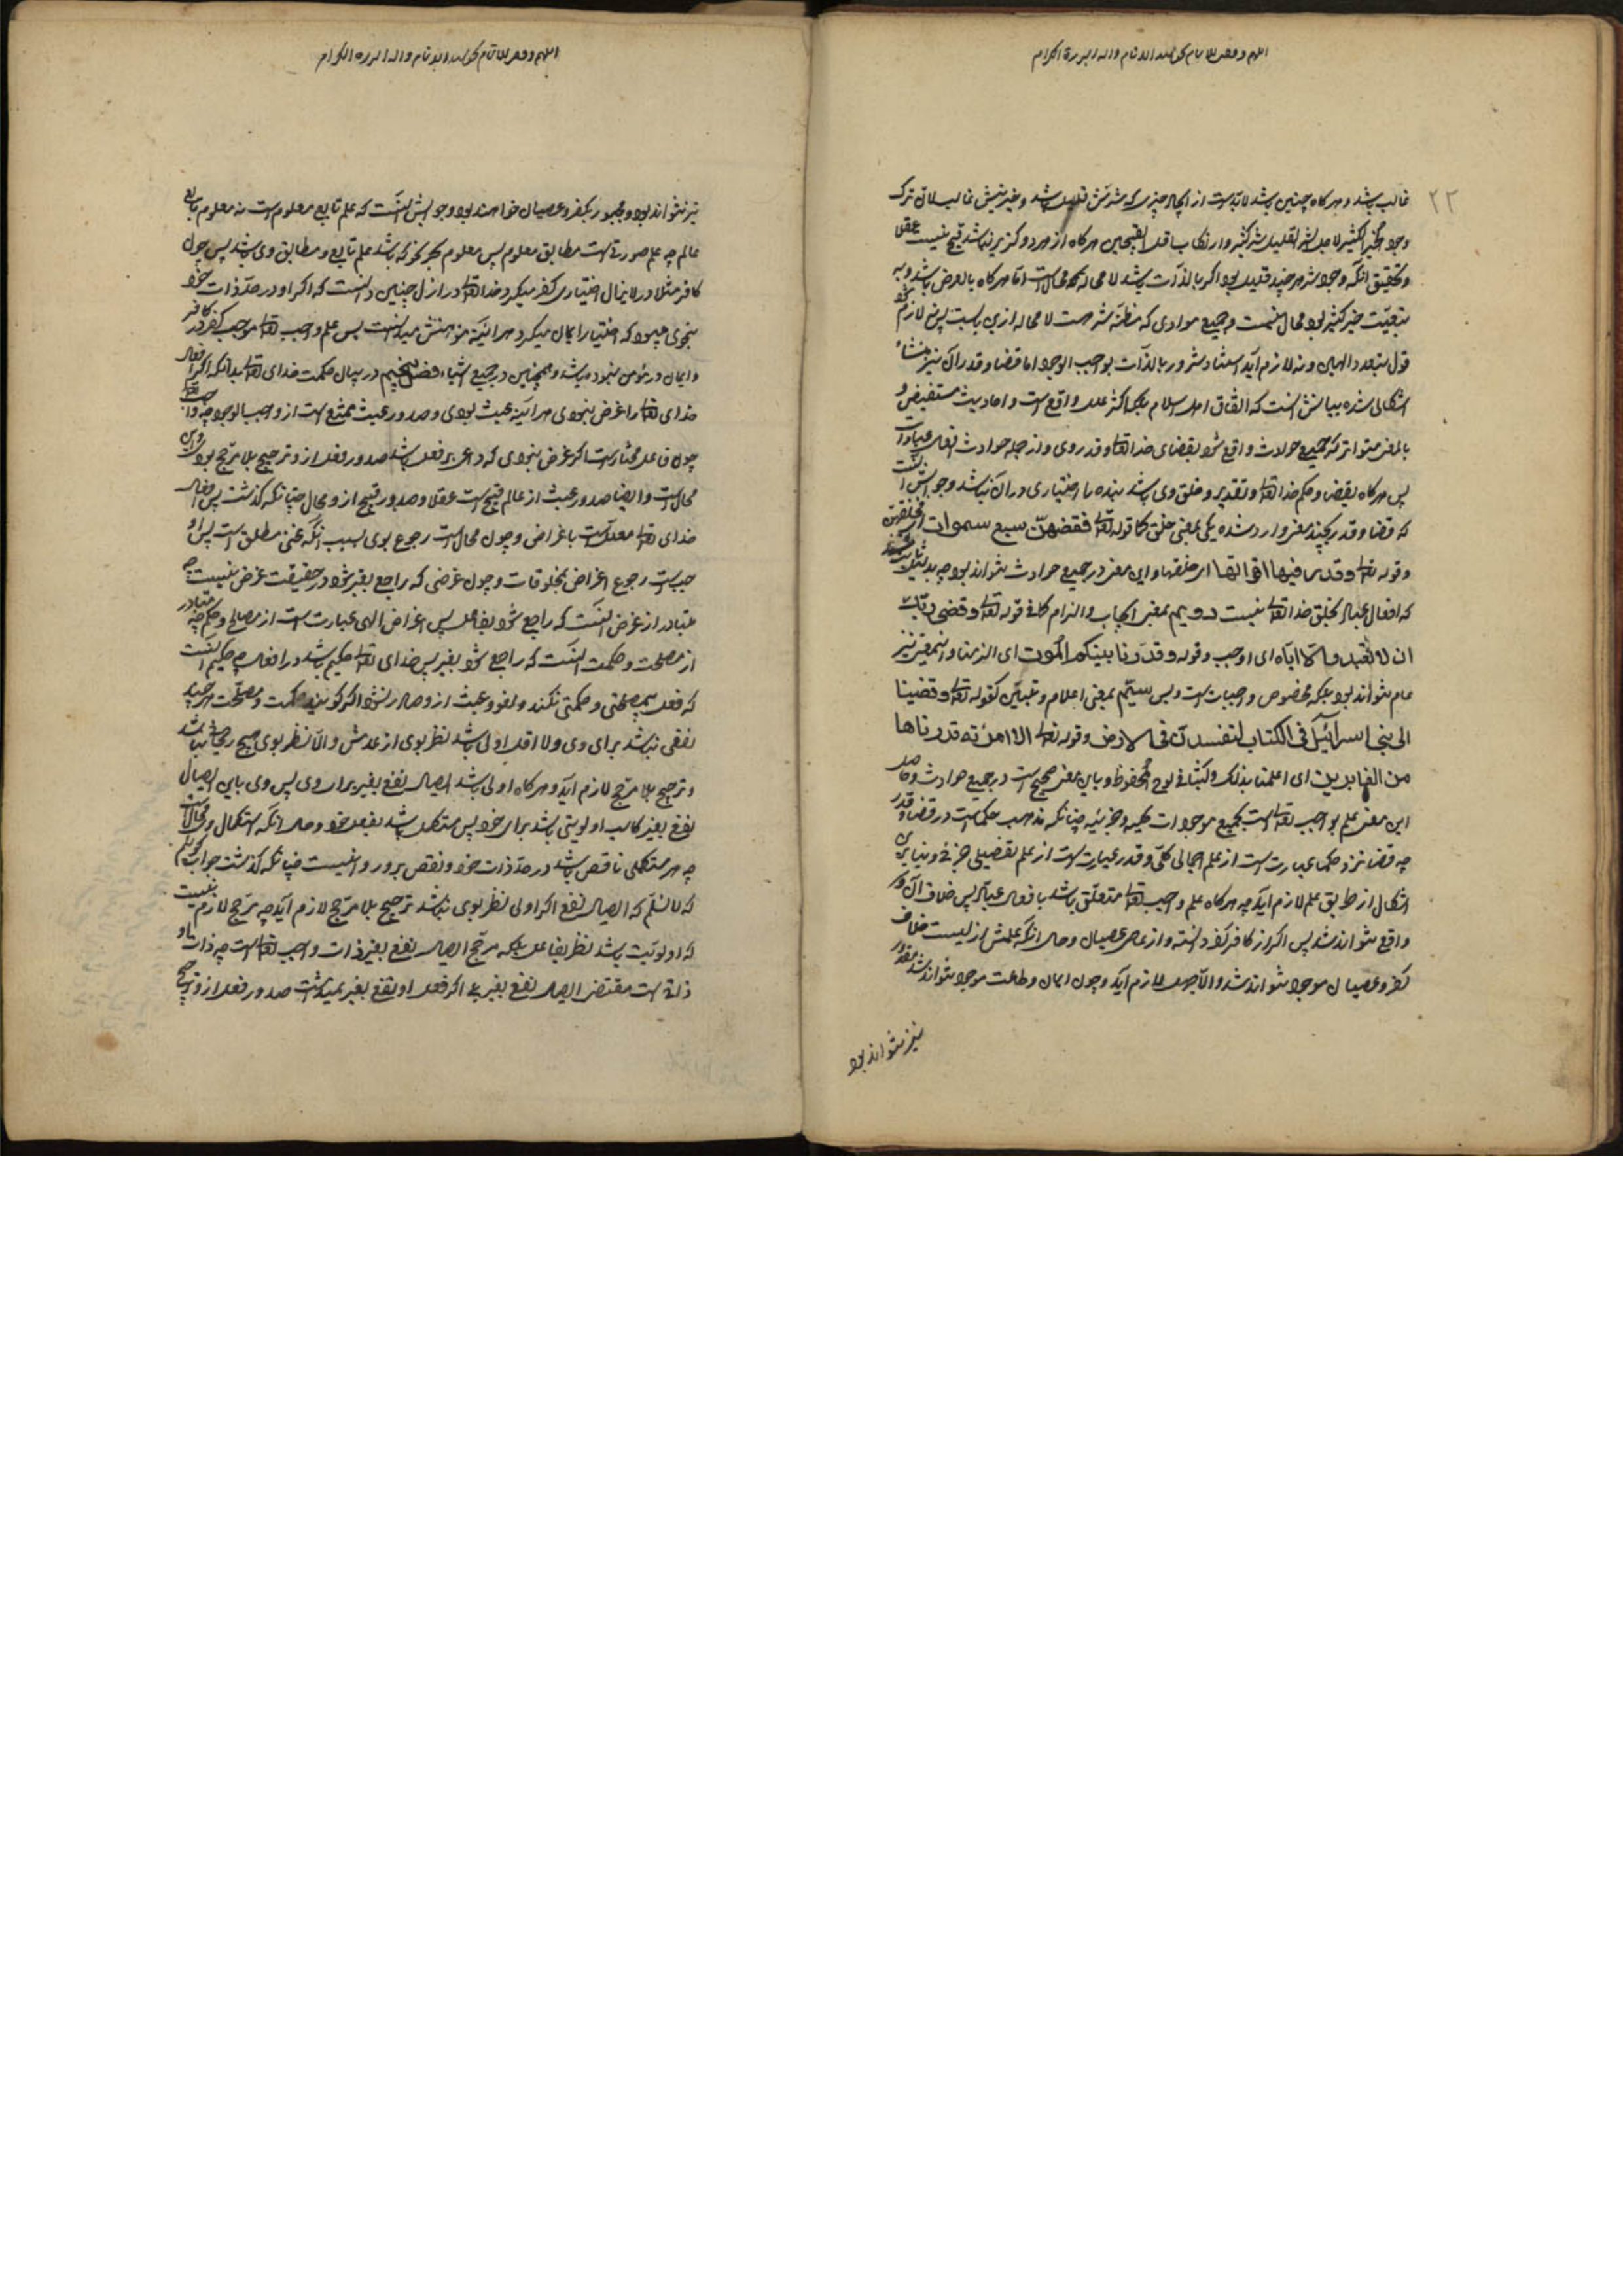 غالب باشد و هرگاه چنین باشد لابدست از ایجاد چیزی که شرش قلیل باشد و خیریتش غالب لان ترک
وجود الخیر الکثیر لاجل الشر القلیل شر کثیر و ارتکاب اقل القبیحین هرگاه از هر دو گزیر نباشد قبیح نیست عقلا
و تحقیق آنکه وجود شر هر چند قلیل بود اگر بالذات باشد لا محاله محال است اما هرگاه بالعرض باشد و به
تبعیت خیر کثیر بود محال نیست و جمیع موادی که مظنه شر هست لا محاله ازین بابست پس نه لازم
قول بتعدد اله و نه لازم آید استناد شرور بالذات بواجب الوجود اما قضا و قدر آن نیز منشاء
اشکالی شده بیانش آنست که اتفاق اهل اسلام بلکه اکثر ملل واقع است و احادیث مستفیض و
بالمعنی متواتر که جمیع حوادث واقع شود بقضای خدایتعالی و قدر وی و از جمله حوادث افعال عباد است
پس هرگاه بقضا و حکم خدایتعالی و تقدیر و خلق وی باشد بنده را اختیاری در آن نباشد و جوابش آنست
که قضا و قدر بچند معنی وارد شده یکی بمعنی خلق کما قوله تعالی فقضیهن سبع سموات ای خلقهن
و قوله تعالی و قدر فیها اقواتها ای خلقها و این معنی در جمیع حوادث نتواند بود چه بدلیل ثابت شد
که افعال عباد بخلق خدایتعالی نیست دویم بمعنی ایجاب و الزام کما فی قوله تعالی و قضی ربک
ان لا تعبدوا الا ایاه ای اوجب و قوله و قدرنا بینکم الموت ای الزمنا و اینمعنی نیز
عام نتواند بود بلکه مخصوص واجبات است و بس سیم بمعنی اعلام و تبیین کقوله تعالی و قضینا
الی بنی اسرائیل فی الکتاب لتفسدن فی الارض و قوله تعالی الا امرأته قدرناها
من الغابرین ای اعلمنا بذلک و کتبنا فی لوح المحفوظ و باین معنی صحیح است در جمیع حوادث و حاصل
این معنی علم واجب تعالی است بجمیع موجودات کلیه و جزئیه چنانکه مذهب حکماست در قضا و قدر
چه قضا نزد حکما عبارت است از علم اجمالی کلی و قدر عبارت است از علم تفصیلی جزئی و بنا برین
اشکال از طریق علم لازم آید چه هرگاه علم واجب تعالی متعلق باشد بافعال عباد پس خلاف آن
واقع نتواند شد پس اگر از کافر کفر دانسته و از عاصی عصیان و حال آنکه علمش ازلیست خلاف
کفر و عصیان موجود نتواند شد و الا جهل لازم آید و چون ایمان و طاعت موجود نتواند شد مقدور
نیز نتواند بود
نیز نتواند بود و مجبور بکفر و عصیان خواهند بود و جوابش آنست که علم تابع معلوم است نه معلوم تابع
عالم چه علم صورتی است مطابق معلوم پس معلوم بهر نحو که باشد علم تابع و مطابق وی باشد پس چون
کافر مثلا در لایزال اختیار کفر میکرد خدایتعالی در ازل چنین دانست که اگر او در حد ذات خود
بنحوی میبود که اختیار ایمان میکرد هر آینه مؤمنش میدانست پس علم واجب تعالی موجب کفر در کافر
و ایمان در مؤمن نبوده باشد و همچنین در جمیع اشیاء فصل پنجم در بیان حکمت خدای تعالی بدانکه اگر افعال
خدای تعالی را غرض نبودی هر آینه عبث بودی و صدور عبث ممتنع است از واجب الوجود چه واجب تعالی
چون فاعل مختار است اگر غرض نبودی که داعی بر فعل باشد صدور فعل ازو ترجیح بلا مرجح بودی و این
محال است و ایضا صدور عبث از عالم قبیح است عقلا و صدور قبیح ازو محال چنانکه گذشت پس افعال
خدای تعالی معلل است باغراض و چون محال است رجوع بوی بسبب آنکه غنی مطلق است پس او
جب است رجوع اغراض بمخلوقات و چون غرضی که راجع بغیر شود در حقیقت غرض نیست چه
متبادر از غرض آنست که راجع شود بفاعل پس اغراض الهی عبارت است از مصالح و حکم چه متبادر
از مصلحت و حکمت آنست که راجع شود بغیر پس خدای تعالی حکیم باشد در افعال چه حکیم آنست
که فعل بی مصلحتی و حکمتی نکند و لغو و عبث ازو صادر نشود اگر گویند حکمت و مصلحت هر چند
نفعی نباشد برای وی و لا اقل اولی باشد نظر بوی از عدمش و الا نظر بوی هیچ رجحان نباشد
و ترجیح بلا مرجح لازم آید و هرگاه اولی باشد ایصال نفع بغیر برای وی پس وی باین ایصال
نفع بغیر کاسب اولویتی باشد برای خود پس مستکمل باشد بفعل خود و حال آنکه استکمال وی محال است
چه هر مستکملی ناقص باشد در حد ذات خود و نقص برو روا نیست چنانکه گذشت جواب گویم
که لا نسلم که ایصال نفع اگر اولی نظر بوی نباشد ترجیح بلا مرجح لازم آید چه مرجح لازم نیست
که اولویت باشد نظر بفاعل بلکه مرجح ایصال نفع بغیر ذات واجب تعالی است چه ذات او
ذاتی است مقتضی ایصال نفع بغیر بلی اگر فعل او نفع بغیر نمیداشت صدور فعل ازو ترجیح